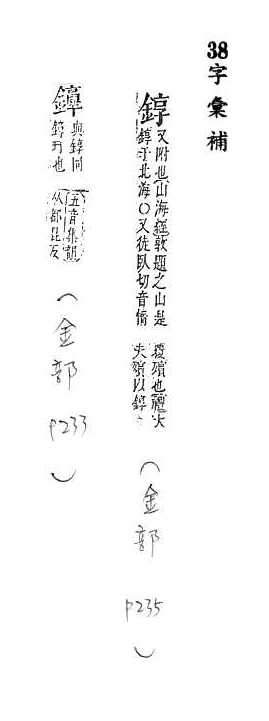 38字彙補
錞 又附也山海經敦題之山是
錞于北海○又徒臥切音惰
覆殯也禮大
夫殯以錞
(金部 P235)
與錞同
錞于也
五音集韻
(金部 P233)